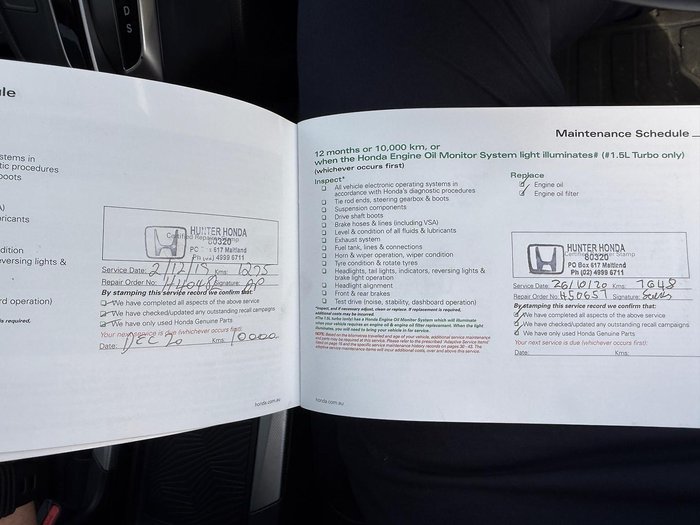 D
S
stems in
tic procedures
boots
A)
ricants
dition
reversing lights &
rd operation)
is required,
HUNTER HONDA
80320
PO Box 617 Maitland
Ph (02) 4999 6711
Service Date: 2/12/19 Kms: 1275
Repair Order No: Signature:
By stamping this service record we confirm that:
We have completed all aspects of the above service
We have checked/updated any outstanding recall campaigns
We have only used Honda Genuine Parts
Your next service is due (whichever occurs first):
Date: DEC 20 Kms: 10000
honda.com.au
Maintenance Schedule
12 months or 10,000 km, or
when the Honda Engine Oil Monitor System light illuminates# (#1.5L Turbo only)
(whichever occurs first)
Inspect*
All vehicle electronic operating systems in
accordance with Honda's diagnostic procedures
Tie rod ends, steering gearbox & boots
Suspension components
Drive shaft boots
Brake hoses & lines (including VSA)
Level & condition of all fluids & lubricants
Exhaust system
Fuel tank, lines & connections
Horn & wiper operation, wiper condition
Tyre condition & rotate tyres
Headlights, tail lights, indicators, reversing lights &
brake light operation
Headlight alignment
Front & rear brakes
Test drive (noise, stability, dashboard operation)
*Inspect, and if necessary adjust, clean or replace. If replacement is required,
additional costs may be incurred.
#The 1.5L turbo (only) has a Honda Engine Oil Monitor System which will illuminate
when your vehicle requires an engine oil & engine oil filter replacement. When the light
illuminates, you will need to bring your vehicle in for service.
NOTE: Based on the kilometres travelled and age of your vehicle, additional service maintenance
and parts may be required at this service. Please refer to the prescribed "Adaptive Service Items"
adaptive service maintenance items will incur additional costs, over and above this service.
honda.com.au
Replace
Engine oil
Engine oil filter
HUNTER HONDA
80320
PO Box 617 Maitland
Ph (02) 4999 6711
Service Date: 26/10/20 Kms: 7648
Repair Order No: 450651 Signature:
By stamping this service record we confirm that:
We have completed all aspects of the above service
We have checked/updated any outstanding recall campaigns
We have only used Honda Genuine Parts
Your next service is due (whichever occurs first):
Date: Kms: